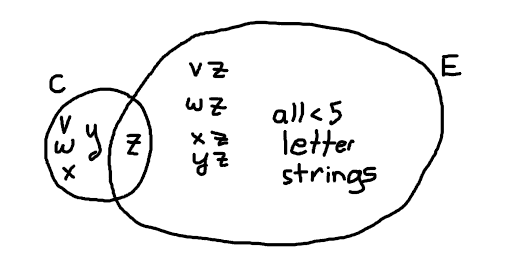 C
E
v
w y
x
z
vz
wz
xz
yz
all < 5
letter
strings